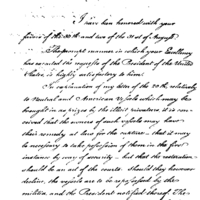 I have been honored with your
favors of the 30th and one of the 31st of August.
The prompt manner in which your Excellency
has executed the requests of the President of the United
States, is highly satisfactory to him.
In explanation of my letter of the 29th relatively
to Neutral and American Vessels which may be
brought in as prizes &
that the owners of such vessels may have
their remedy at law for the capture, that it may
be necessary to take possession of them in the first
instance by way of security — but that the restoration
should be an act of the courts. Should they however
decline, the vessels are to be repossessed by the
militia and the President notified thereof. The